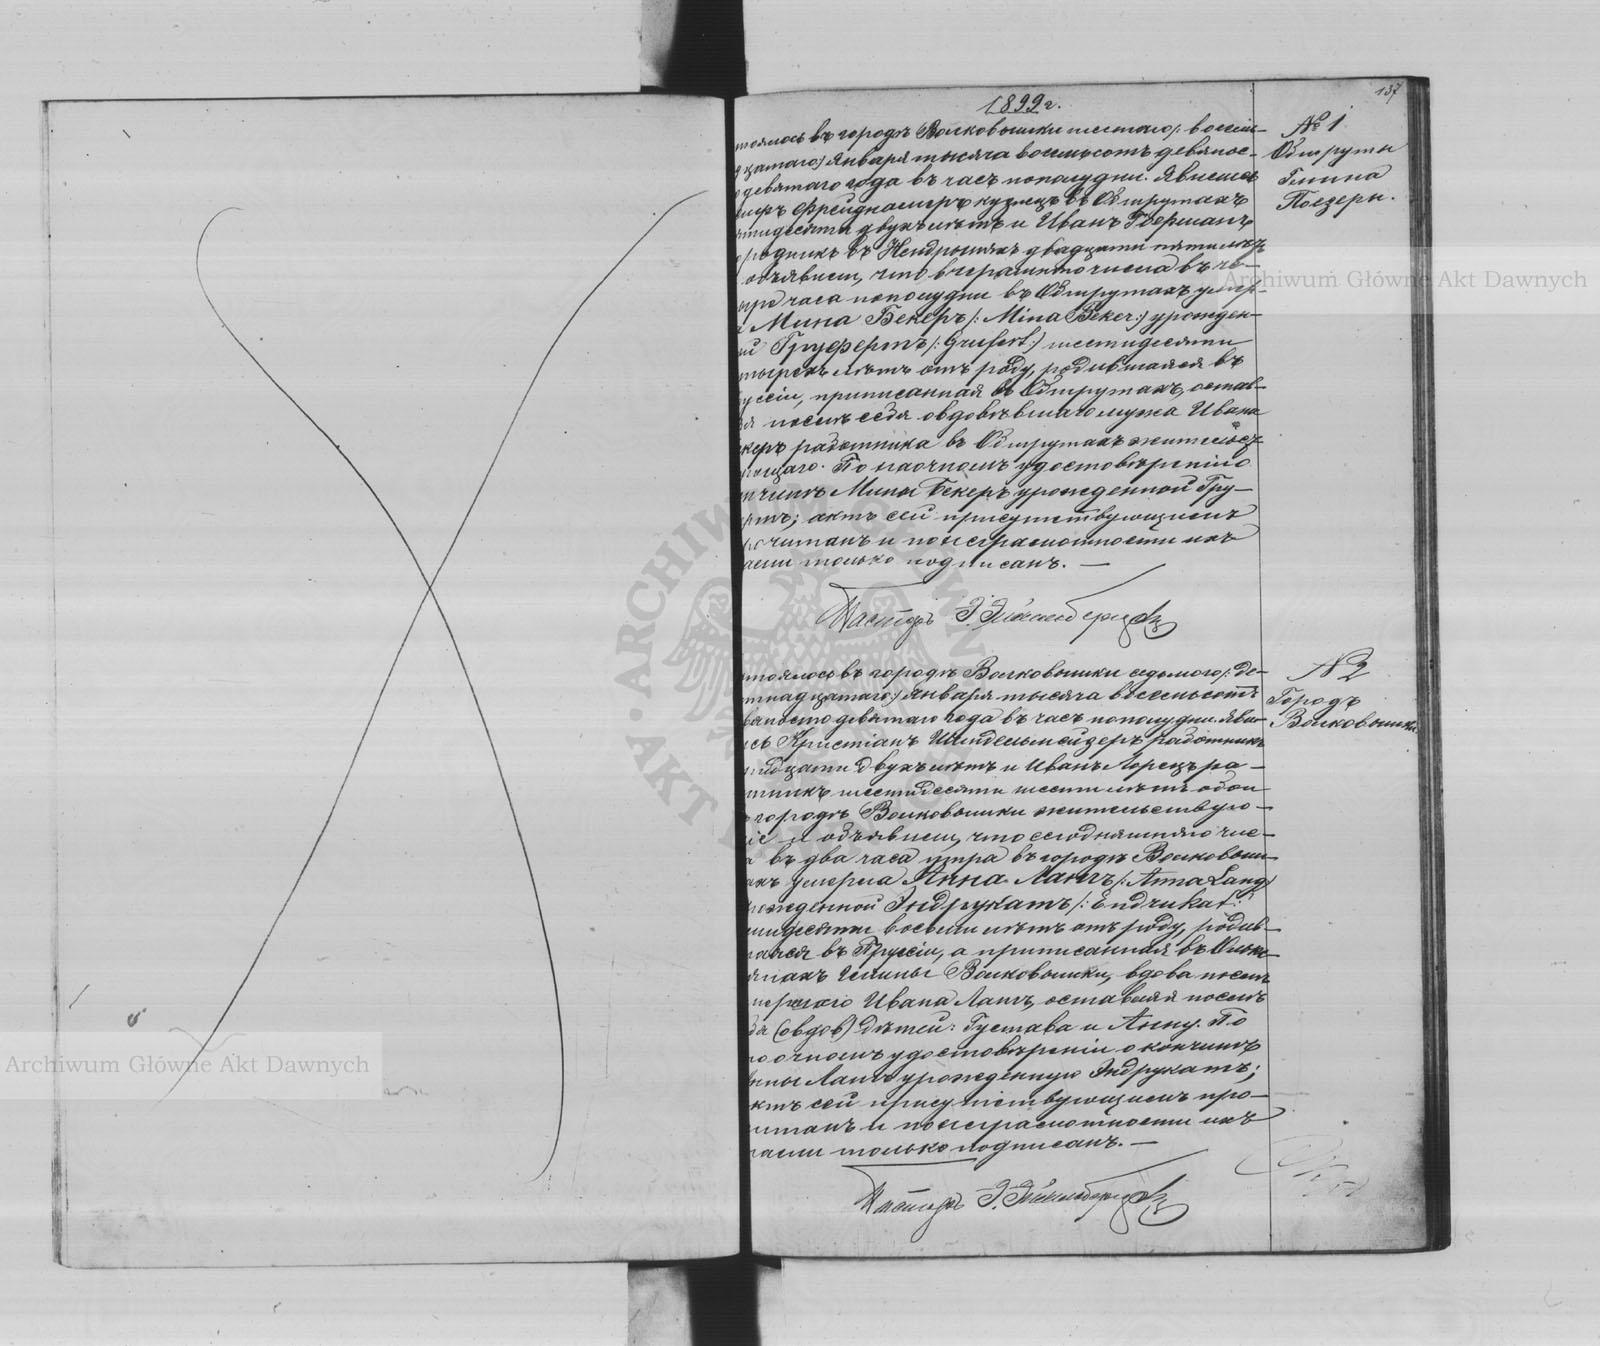 137
1899 г.
№ 1
Обшруты
Гмина
Поезеры.
тоялось въ городѣ Волковышки шестаго /: восем-
дцатаго :/ Января тысяча восемьсотъ девянос-
девятаго года въ часъ пополудни. Явились
кузнецъ въ Обшрутахъ
двухъ лѣтъ и Иванъ
въ двадцати пяти лѣтъ
объявили, что вчерашняго числа въ че-
часа пополудни въ Обшрутахъ умер-
Мина Бекеръ /: Mina Beker :/ урожден-
Груфертъ /: Grufert :/ шестидесяти
тырехъ лѣтъ отъ роду, родившаяся въ
уссіи, приписанная въ Обшрутахъ, остав-
послѣ себя овдовѣвшаго мужа Ивана
керъ работника въ Обшрутахъ жительст
ющаго. По наочномъ удостовѣреніи о
Мины Бекеръ урожденной Гру-
ртъ; актъ сей присутствующимъ
очитанъ и по неграмотности ихъ
ами только подписанъ. —
Пасторъ
№ 2
Городъ
Волковышки
тоялось въ городѣ Волковышки седьмаго /: де-
тнадцатаго :/ Января тысяча восемьсотъ
вяносто девятаго года въ часъ пополудни. Яви-
сь Кристіанъ работникъ
идцати двухъ лѣтъ и Иванъ Лоренцъ ра-
тникъ шестидесяти шести лѣтъ обои
городѣ Волковышки жительствую-
іе и объявили, что сегодняшняго чис-
а въ два часа утра въ городѣ Волковыш-
ахъ умерла Анна Лангъ /: Anna Lang :/
рожденной Эндрукатъ /: Endrukat :/
мидесяти восьми лѣтъ отъ роду, родив-
шаяся въ Пруссіи, а приписанная въ
гмины Волковышки, вдова послѣ
мершаго Ивана Лангъ, оставивъ послѣ
бя (овдов) дѣтей: Густава и Анну. По
аочномъ удостовѣреніи о кончинѣ
нны Лангъ урожденную Эндрукатъ;
ктъ сей присутствующимъ про-
итанъ и по неграмотности ихъ
ами только подписанъ. —
Пасторъ
Archiwum Główne Akt Dawnych
Archiwum Główne Akt Dawnych